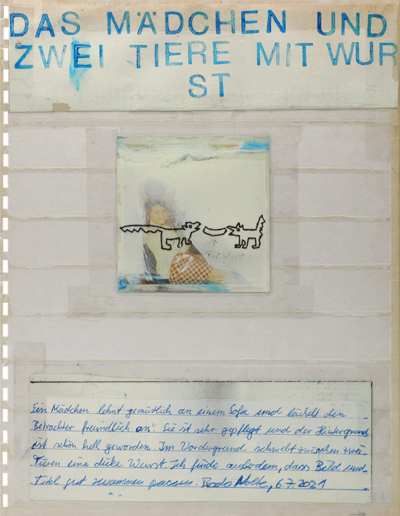 DAS MÄDCHEN UND
ZWEI TIERE MIT WUR
ST
Die Wurst
Ein Mädchen lehnt gemütlich an einem Sofa und lächelt den
Betrachter freundlich an. Sie ist sehr gepflegt und der Hintergrund
ist schön hell geworden. Im Vordergrund schwebt zwischen zwei
Tieren eine dicke Wurst. Ich finde außerdem, dass Bild und
Titel gut zusammen passen. Bodo Nolte, 6.7.2021